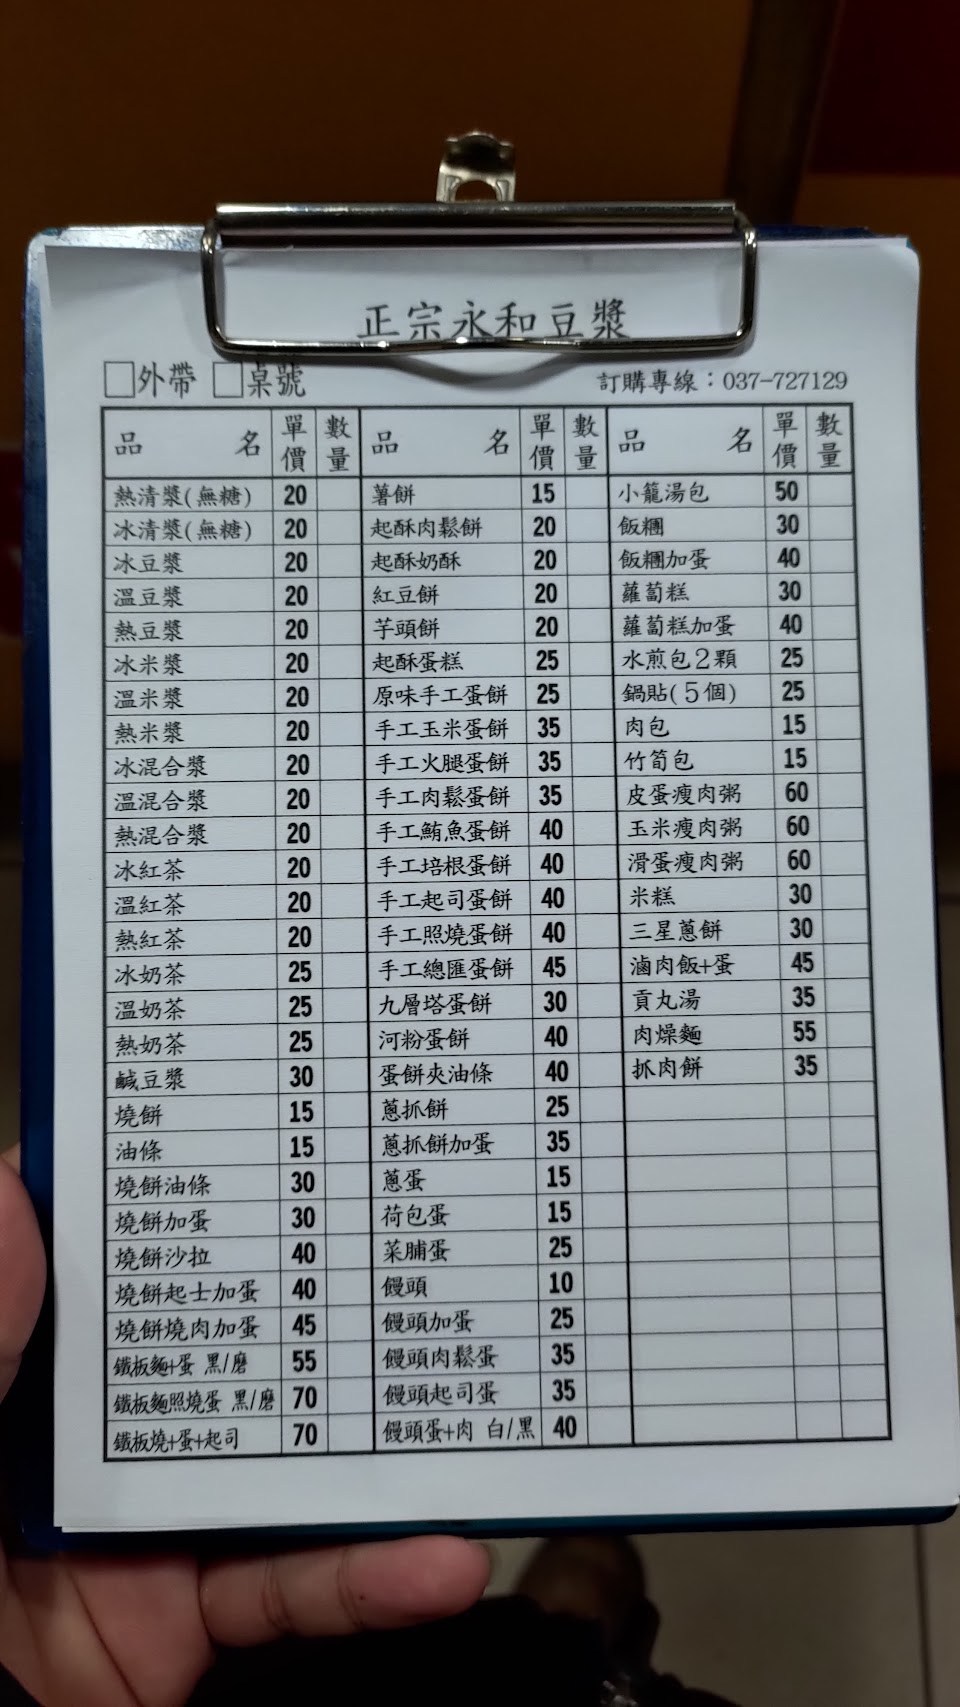 正宗永和豆漿
□外帶 □桌號 訂購專線：037-727129
品名 單價 數量 品名 單價 數量 品名 單價 數量
熱清漿(無糖) 20 薯餅 15 小籠湯包 50
冰清漿(無糖) 20 起酥肉鬆餅 20 飯糰 30
冰豆漿 20 起酥奶酥 20 飯糰加蛋 40
溫豆漿 20 紅豆餅 20 蘿蔔糕 30
熱豆漿 20 芋頭餅 20 蘿蔔糕加蛋 40
冰米漿 20 起酥蛋糕 25 水煎包2顆 25
溫米漿 20 原味手工蛋餅 25 鍋貼(5個) 25
熱米漿 20 手工玉米蛋餅 35 肉包 15
冰混合漿 20 手工火腿蛋餅 35 竹筍包 15
溫混合漿 20 手工肉鬆蛋餅 35 皮蛋瘦肉粥 60
熱混合漿 20 手工鮪魚蛋餅 40 玉米瘦肉粥 60
冰紅茶 20 手工培根蛋餅 40 滑蛋瘦肉粥 60
溫紅茶 20 手工起司蛋餅 40 米糕 30
熱紅茶 20 手工照燒蛋餅 40 三星蔥餅 30
冰奶茶 25 手工總匯蛋餅 45 滷肉飯+蛋 45
溫奶茶 25 九層塔蛋餅 30 貢丸湯 35
熱奶茶 25 河粉蛋餅 40 肉燥麵 55
鹹豆漿 30 蛋餅夾油條 40 抓肉餅 35
燒餅 15 蔥抓餅 25
油條 15 蔥抓餅加蛋 35
燒餅油條 30 蔥蛋 15
燒餅加蛋 30 荷包蛋 15
燒餅沙拉 40 菜脯蛋 25
燒餅起士加蛋 40 饅頭 10
燒餅燒肉加蛋 45 饅頭加蛋 25
鐵板麵+蛋 黑/磨 55 饅頭肉鬆蛋 35
鐵板麵照燒蛋 黑/磨 70 饅頭起司蛋 35
鐵板燒+蛋+起司 70 饅頭蛋+肉 白/黑 40